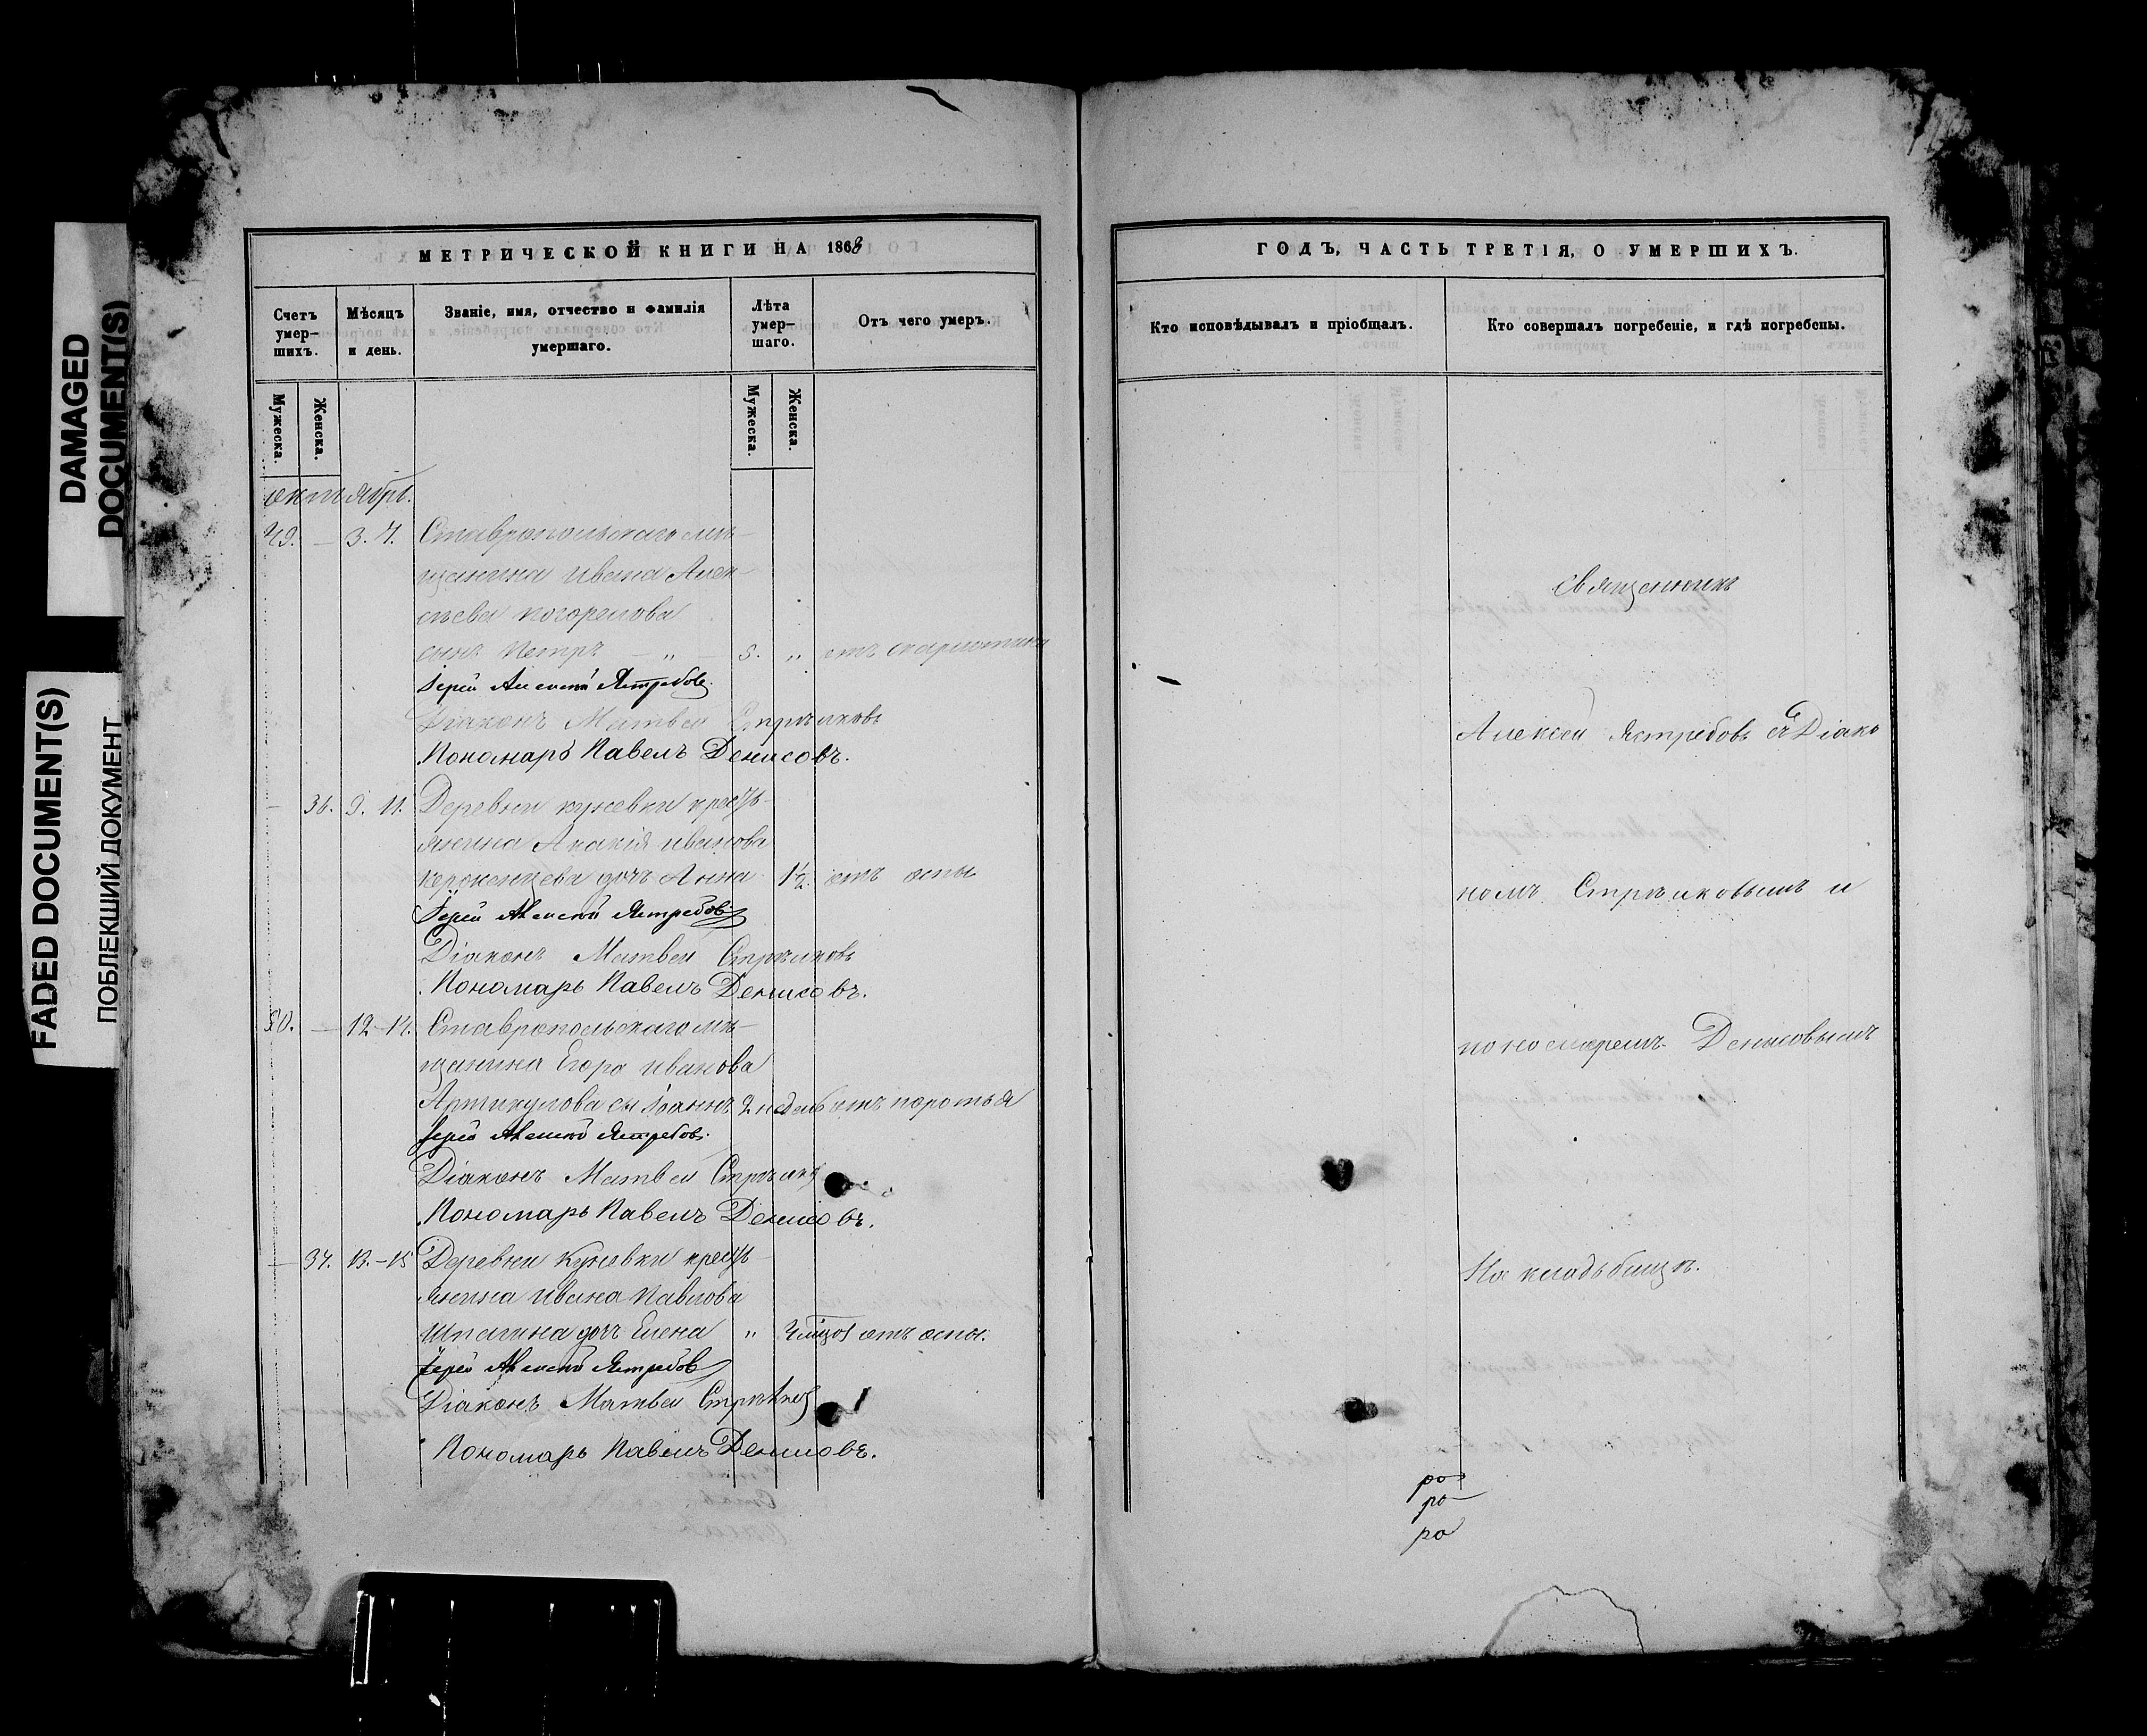 DAMAGED
DOCUMENT(S)
FADED DOCUMENT(S)
ПОБЛЕКШИЙ ДОКУМЕНТ
МЕТРИЧЕСКОЙ КНИГИ НА 1868
Счетъ умер-
шихъ.
Мѣсяцъ
и день.
Званіе, имя, отчество и фамилія
умершаго.
Лѣта
умер-
шаго.
Отъ чего умеръ.
Мужеска.
Женска.
Мужеска.
Женска.
октябрь.
49. — 3. 4. Ставропольскаго мѣ-
щанина Ивана Алек-
сѣева Погорелова
сынъ Петръ — „ — „ отъ скарлотины
Іерей Алексѣй Ястребовъ.
Діаконъ Матвей Стрѣлковъ
Пономарь Павелъ Денисовъ.
— 36. 9. 11. Деревни кунеевки кресть-
янина Акакія Иванова
дочь Анна 1½. отъ оспы
Іерей Алексѣй Ястребовъ
Діаконъ Матвей Стрѣлковъ
Пономарь Павелъ Денисовъ.
50. — 12–14. Ставропольскаго мѣ-
щанина Егора Иванова
Артикулова сы Іоаннъ 2 недель отъ
Іерей Алексѣй Ястребовъ.
Діаконъ Матвей Стрѣлков
Пономарь Павелъ Денисовъ.
— 37. 13.–15 Деревни Кунеевки кресть-
янина Ивана Павлова
Шпагина дочь Елена „ отъ оспы.
Іерей Алексѣй Ястребовъ
Діаконъ Матвей Стрѣлков
Пономарь Павелъ Денисовъ.
ГОДЪ, ЧАСТЬ ТРЕТІЯ, О УМЕРШИХЪ.
Кто исповѣдывалъ и пріобщалъ.
Кто совершалъ погребеніе, и гдѣ погребены.
священникъ
Алексѣй Ястребовъ съ Діако
номъ Стрѣлковымъ и
пономаремъ Денисовымъ
На кладьбищѣ.
ро
ро
ро